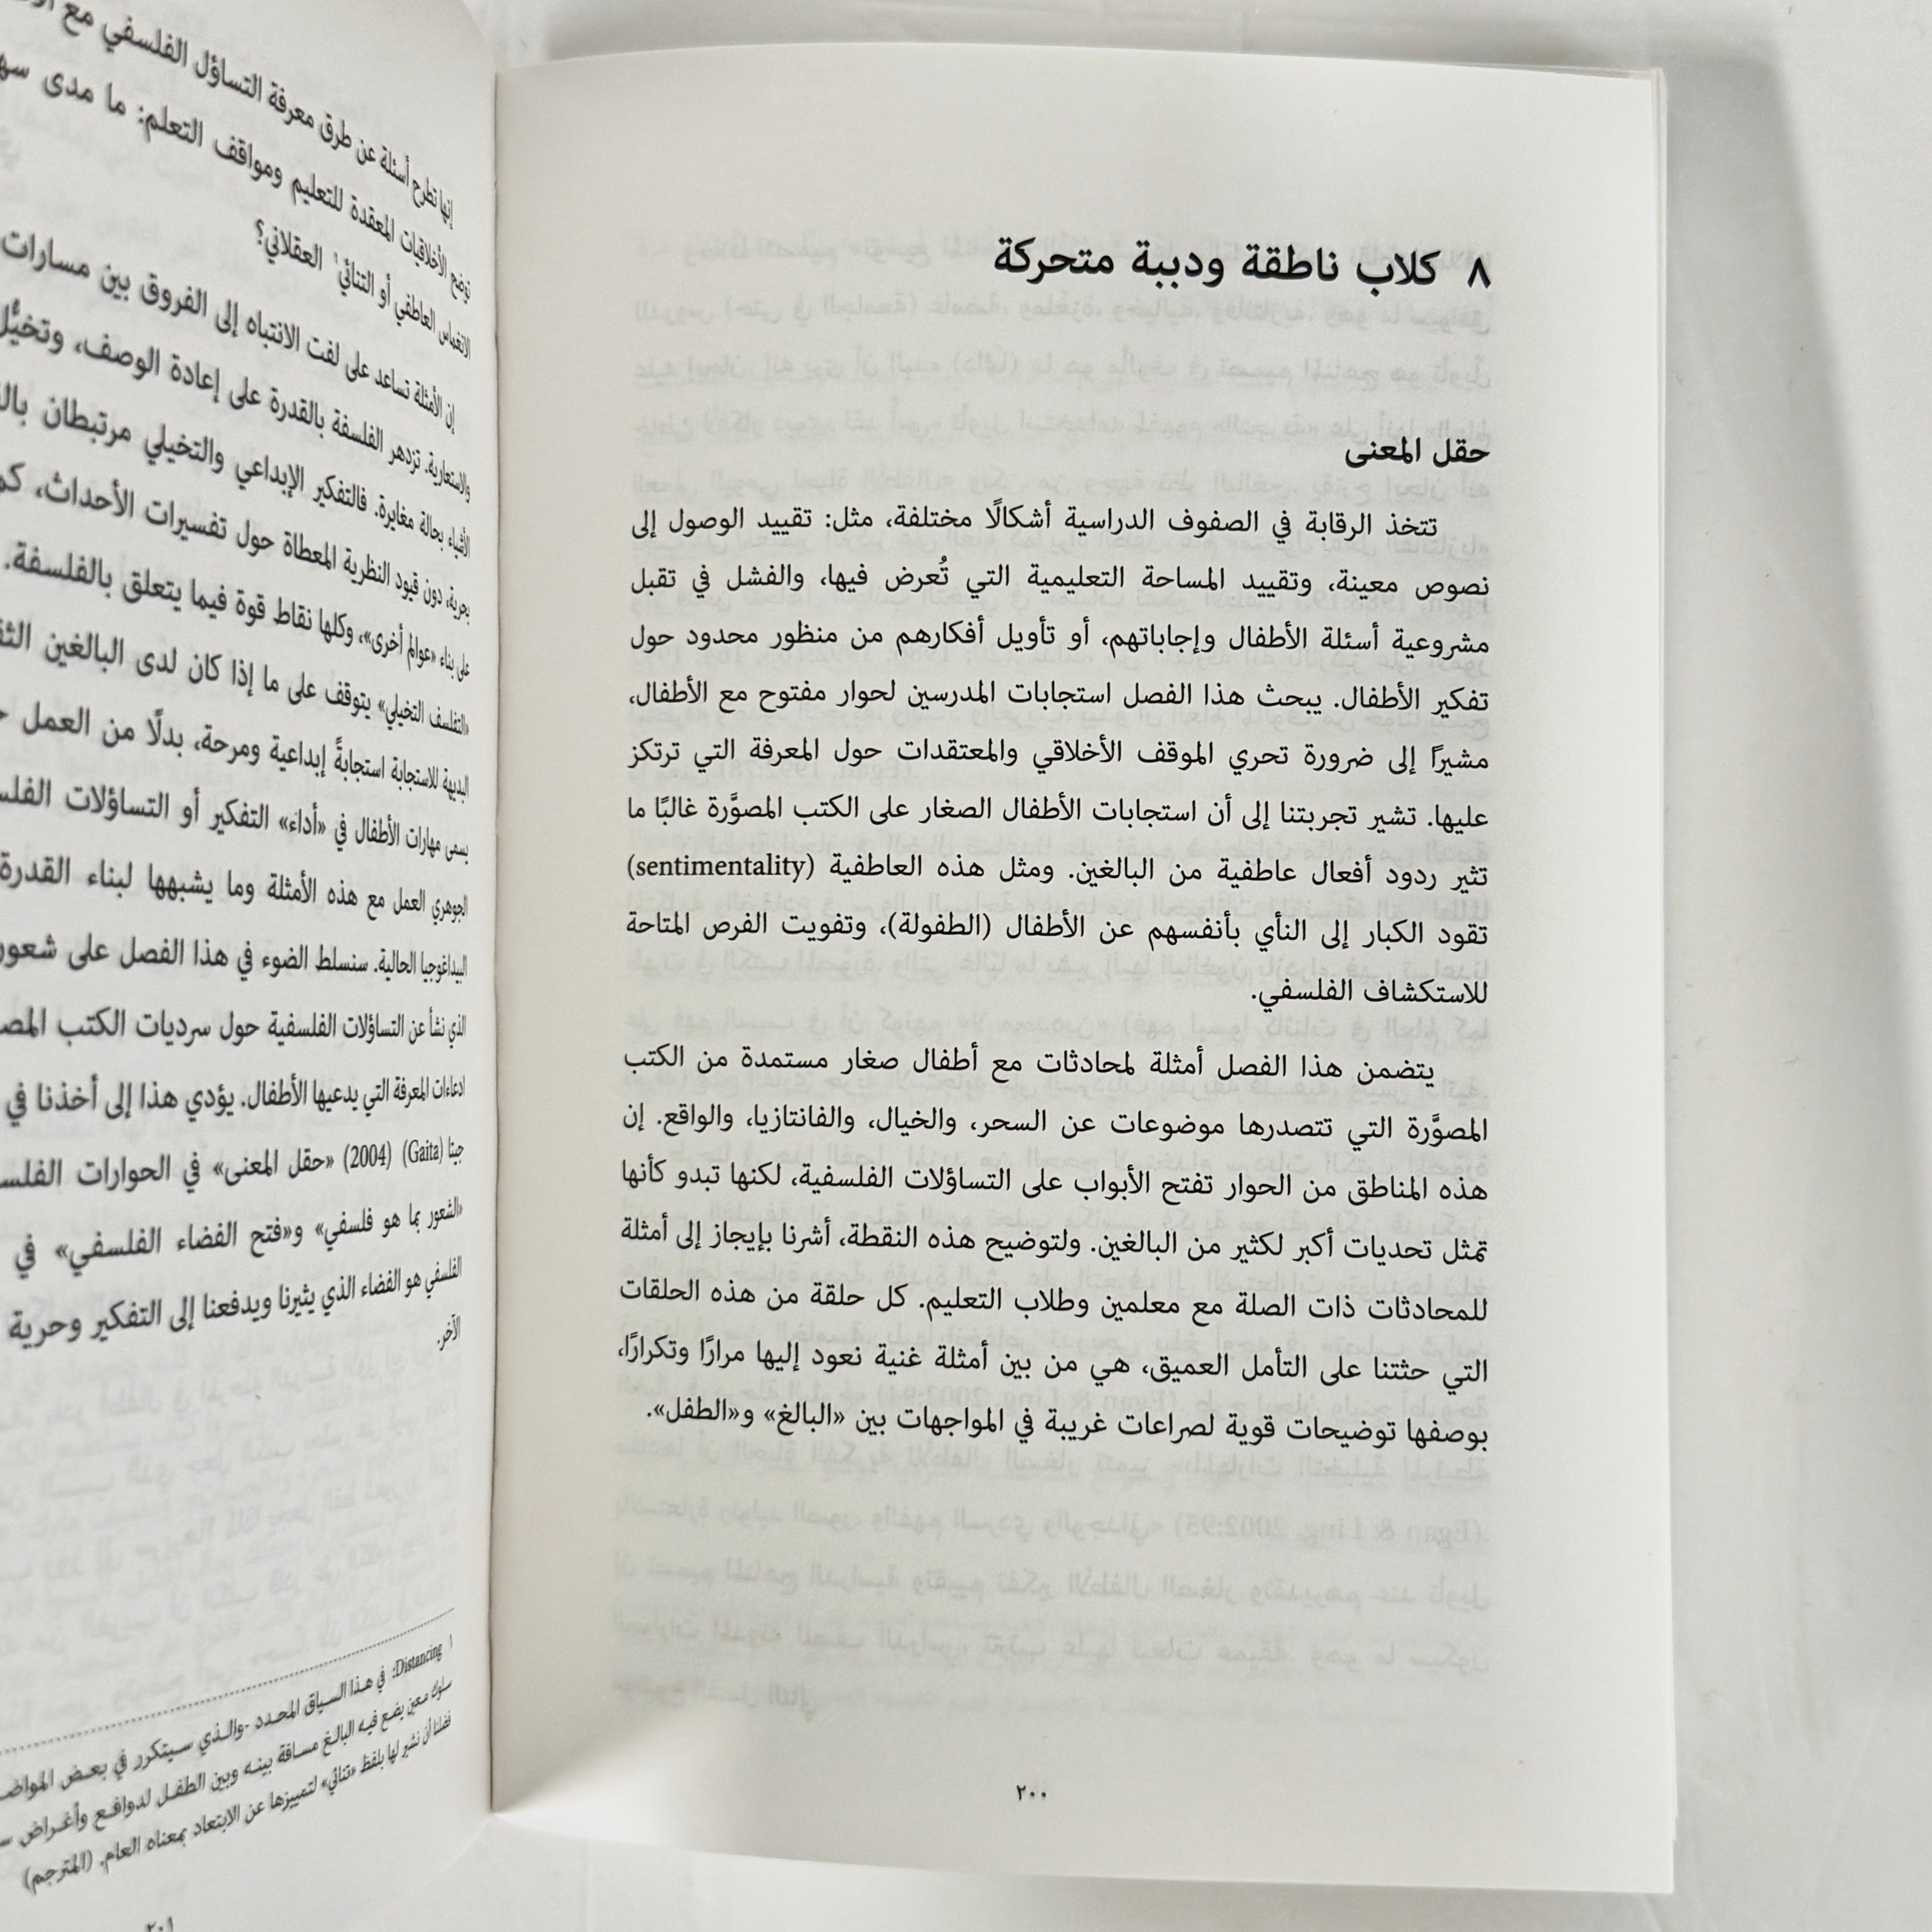 ٨ كلاب ناطقة ودببة متحركة
حقل المعنى
تتخذ الرقابة في الصفوف الدراسية أشكالًا مختلفة، مثل: تقييد الوصول إلى
نصوص معينة، وتقييد المساحة التعليمية التي تُعرض فيها، والفشل في تقبل
مشروعية أسئلة الأطفال وإجاباتهم، أو تأويل أفكارهم من منظور محدود حول
تفكير الأطفال. يبحث هذا الفصل استجابات المدرسين لحوار مفتوح مع الأطفال،
مشيرًا إلى ضرورة تحري الموقف الأخلاقي والمعتقدات حول المعرفة التي ترتكز
عليها. تشير تجربتنا إلى أن استجابات الأطفال الصغار على الكتب المصوَّرة غالبًا ما
تثير ردود أفعال عاطفية من البالغين. ومثل هذه العاطفية (sentimentality)
تقود الكبار إلى النأي بأنفسهم عن الأطفال (الطفولة)، وتفويت الفرص المتاحة
للاستكشاف الفلسفي.
يتضمن هذا الفصل أمثلة لمحادثات مع أطفال صغار مستمدة من الكتب
المصوَّرة التي تتصدرها موضوعات عن السحر، والخيال، والفانتازيا، والواقع. إن
هذه المناطق من الحوار تفتح الأبواب على التساؤلات الفلسفية، لكنها تبدو كأنها
تمثل تحديات أكبر لكثير من البالغين. ولتوضيح هذه النقطة، أشرنا بإيجاز إلى أمثلة
للمحادثات ذات الصلة مع معلمين وطلاب التعليم. كل حلقة من هذه الحلقات
التي حثتنا على التأمل العميق، هي من بين أمثلة غنية نعود إليها مرارًا وتكرارًا،
بوصفها توضيحات قوية لصراعات غريبة في المواجهات بين «البالغ» و«الطفل».
٢٠٠
إنها تطرح أسئلة عن طرق معرفة التساؤل الفلسفي مع
توضح الأخلاقيات المعقدة للتعليم ومواقف التعلم: ما مدى
الانغماس العاطفي أو التنائي١ العقلاني؟
إن الأمثلة تساعد على لفت الانتباه إلى الفروق بين مسارات
والاستعارية. تزدهر الفلسفة بالقدرة على إعادة الوصف، وتخيُّل
الأشياء بحالة مغايرة. فالتفكير الإبداعي والتخيلي مرتبطان
بحرية، دون قيود النظرية المعطاة حول تفسيرات الأحداث،
على بناء «عوالم أخرى»، وكلها نقاط قوة فيما يتعلق بالفلسفة.
«التفلسف التخيلي» يتوقف على ما إذا كان لدى البالغين
البديهة للاستجابة استجابةً إبداعية ومرحة، بدلًا من العمل
يسمى مهارات الأطفال في «أداء» التفكير أو التساؤلات
الجوهري العمل مع هذه الأمثلة وما يشبهها لبناء القدرة
البيداغوجيا الحالية. سنسلط الضوء في هذا الفصل على
الذي نشأ عن التساؤلات الفلسفية حول سرديات الكتب
ادعاءات المعرفة التي يدعيها الأطفال. يؤدي هذا إلى أخذنا في
جيتا (Gaita) (2004) «حقل المعنى» في الحوارات
«الشعور بما هو فلسفي» و«فتح الفضاء الفلسفي» في
الفلسفي هو الفضاء الذي يثيرنا ويدفعنا إلى التفكير وحرية
الآخر.
١ Distancing: في هذا السياق المحدد -والذي سيتكرر في بعض
سلوك معين يضع فيه البالغ مسافة بينه وبين الطفل لدوافع وأغراض
فضلنا أن نشير لها بلفظ «تنائي» لتمييزها عن الابتعاد بمعناه العام. (المترجم)
٢٠١